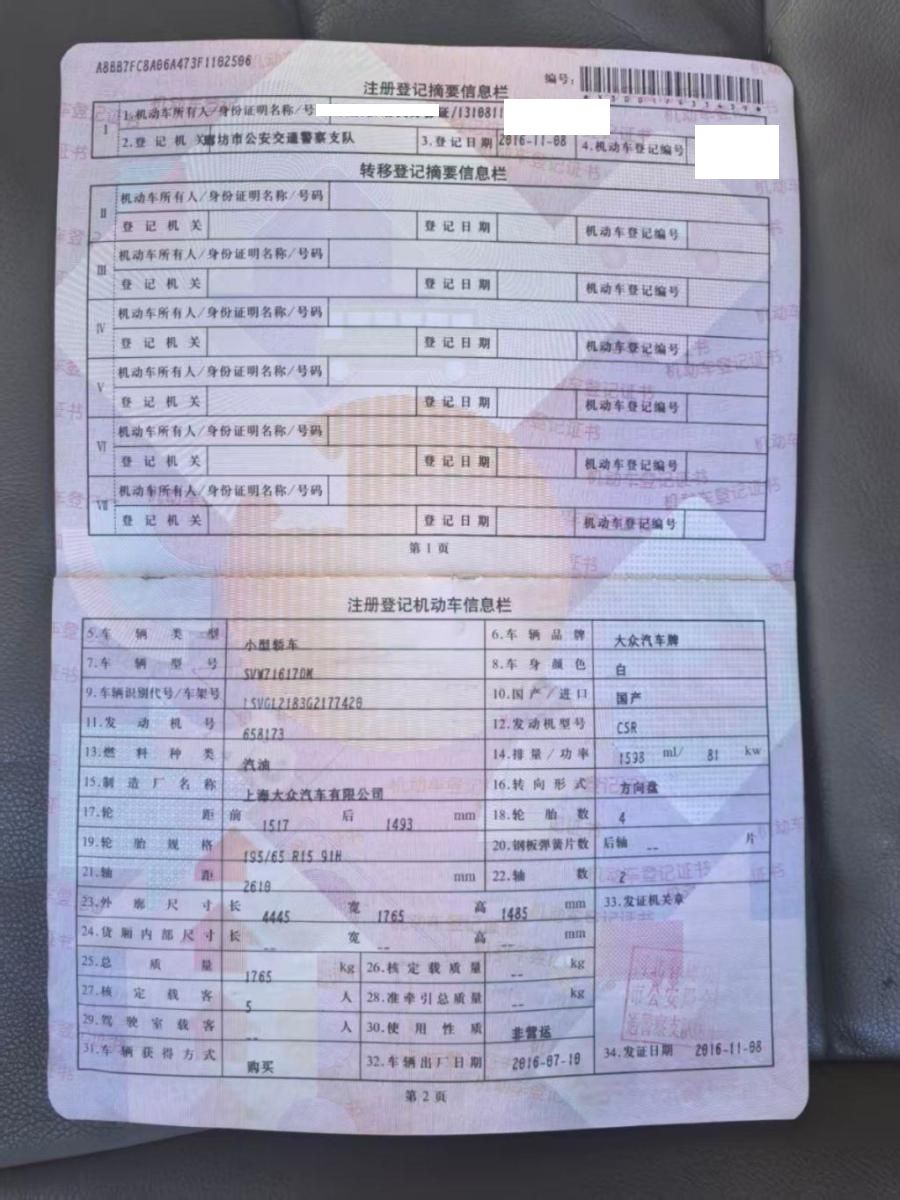 A8BB7FC8A06A473F1102506
编号:
注册登记摘要信息栏
I 1.机动车所有人/身份证明名称/号 证/1310811
2.登记机关 廊坊市公安交通警察支队 3.登记日期 2016-11-08 4.机动车登记编号
转移登记摘要信息栏
II 机动车所有人/身份证明名称/号码
登记机关 登记日期 机动车登记编号
III 机动车所有人/身份证明名称/号码
登记机关 登记日期 机动车登记编号
IV 机动车所有人/身份证明名称/号码
登记机关 登记日期 机动车登记编号
V 机动车所有人/身份证明名称/号码
登记机关 登记日期 机动车登记编号
VI 机动车所有人/身份证明名称/号码
登记机关 登记日期 机动车登记编号
VII 机动车所有人/身份证明名称/号码
登记机关 登记日期 机动车登记编号
第1页
注册登记机动车信息栏
5.车辆类型 小型轿车 6.车辆品牌 大众汽车牌
7.车辆型号 SVW71617DM 8.车身颜色 白
9.车辆识别代号/车架号 LSVGL2183G2177420 10.国产/进口 国产
11.发动机号 658173 12.发动机型号 CSR
13.燃料种类 汽油 14.排量/功率 1598 ml/ 81 kw
15.制造厂名称 上海大众汽车有限公司 16.转向形式 方向盘
17.轮距 前 1517 后 1493 mm 18.轮胎数 4
19.轮胎规格 195/65 R15 91H 20.钢板弹簧片数 后轴 -- 片
21.轴距 2610 mm 22.轴数 2
23.外廓尺寸 长 4445 宽 1765 高 1485 mm 33.发证机关章
24.货厢内部尺寸 长 -- 宽 -- 高 -- mm
25.总质量 1765 kg 26.核定载质量 -- kg
27.核定载客 5 人 28.准牵引总质量 -- kg
29.驾驶室载客 -- 人 30.使用性质 非营运
31.车辆获得方式 购买 32.车辆出厂日期 2016-07-10 34.发证日期 2016-11-08
第2页